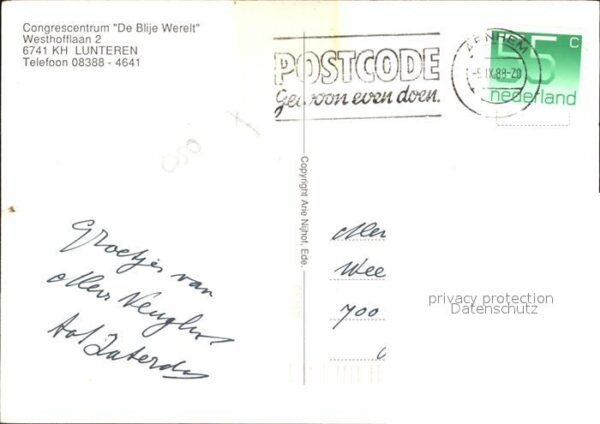 Congrescentrum "De Blije Werelt"
Westhofflaan 2
6741 KH LUNTEREN
Telefoon 08388 - 4641
POSTCODE
Gewoon even doen.
ARNHEM
55 c
nederland
Copyright Arie Nijhof, Ede.
Groetjes van
Mevr
tot Zaterdag
Mevr
Wee
700
privacy protection
Datenschutz